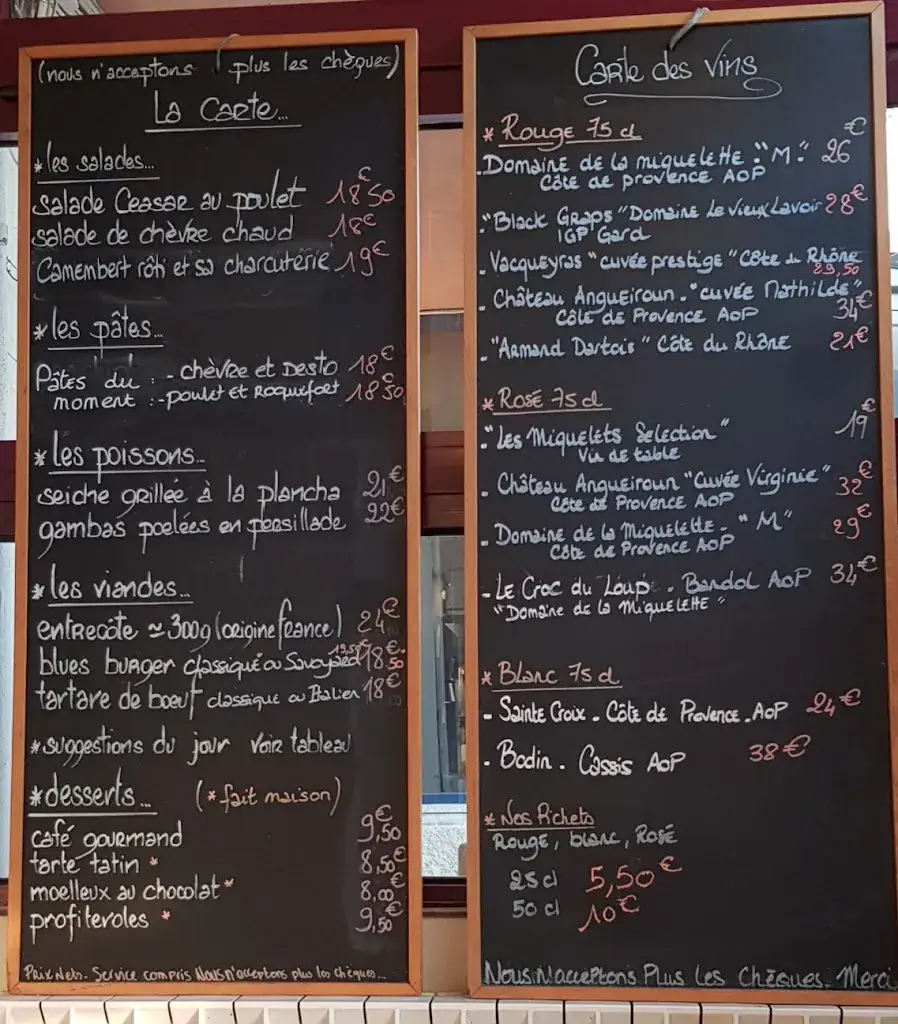 (nous n'acceptons plus les chèques)
La Carte...
* les salades...
salade Ceasar au poulet 18€50
salade de chèvre chaud 18€
Camembert rôti et sa charcuterie 19€
* les pâtes...
Pâtes du : - chèvre et Pesto 18€
moment : - poulet et Roquefort 18€50
* les poissons...
seiche grillée à la plancha 21€
gambas poelées en persillade 22€
* les viandes...
entrecôte ≃ 300g (origine france) 24€
blues burger classique ou Savoyard 19,50€ 18€.50
tartare de bœuf classique ou Italien 18€
* suggestions du jour voir tableau
* desserts... (* fait maison)
café gourmand 9€,50
tarte tatin * 8,50€
moelleux au chocolat * 8,00€
profiteroles * 9,50€
Prix Nets. Service compris Nous n'acceptons plus les chèques...
Carte des vins
* Rouge 75 cl €
- Domaine de la miquelette : "M". 26
Côte de provence AOP
- "Black Graps" Domaine Le Vieux Lavoir 28€
IGP Gard
- Vacqueyras "cuvée prestige" Côte du Rhône
29,50
- Château Angueiroun - "cuvée Mathilde"
Côte de Provence AOP 34€
- "Armand Dartois" Côte du Rhône 21€
* Rosé 75 cl
- "Les Miquelets Selection" 19€
Vin de table
- Château Angueiroun "Cuvée Virginie" 32€
Côte de Provence AOP
- Domaine de la Miquelette - "M" 29€
Côte de Provence AOP
- Le Croc du Loup - Bandol AOP 34€
"Domaine de la Miquelette"
* Blanc 75 cl
- Sainte Croix - Côte de Provence - AOP 24€
- Bodin - Cassis AOP 38€
* Nos Pichets
Rouge, blanc, Rosé
25 cl 5,50€
50 cl 10€
Nous N'acceptons Plus Les Chèques. Merci